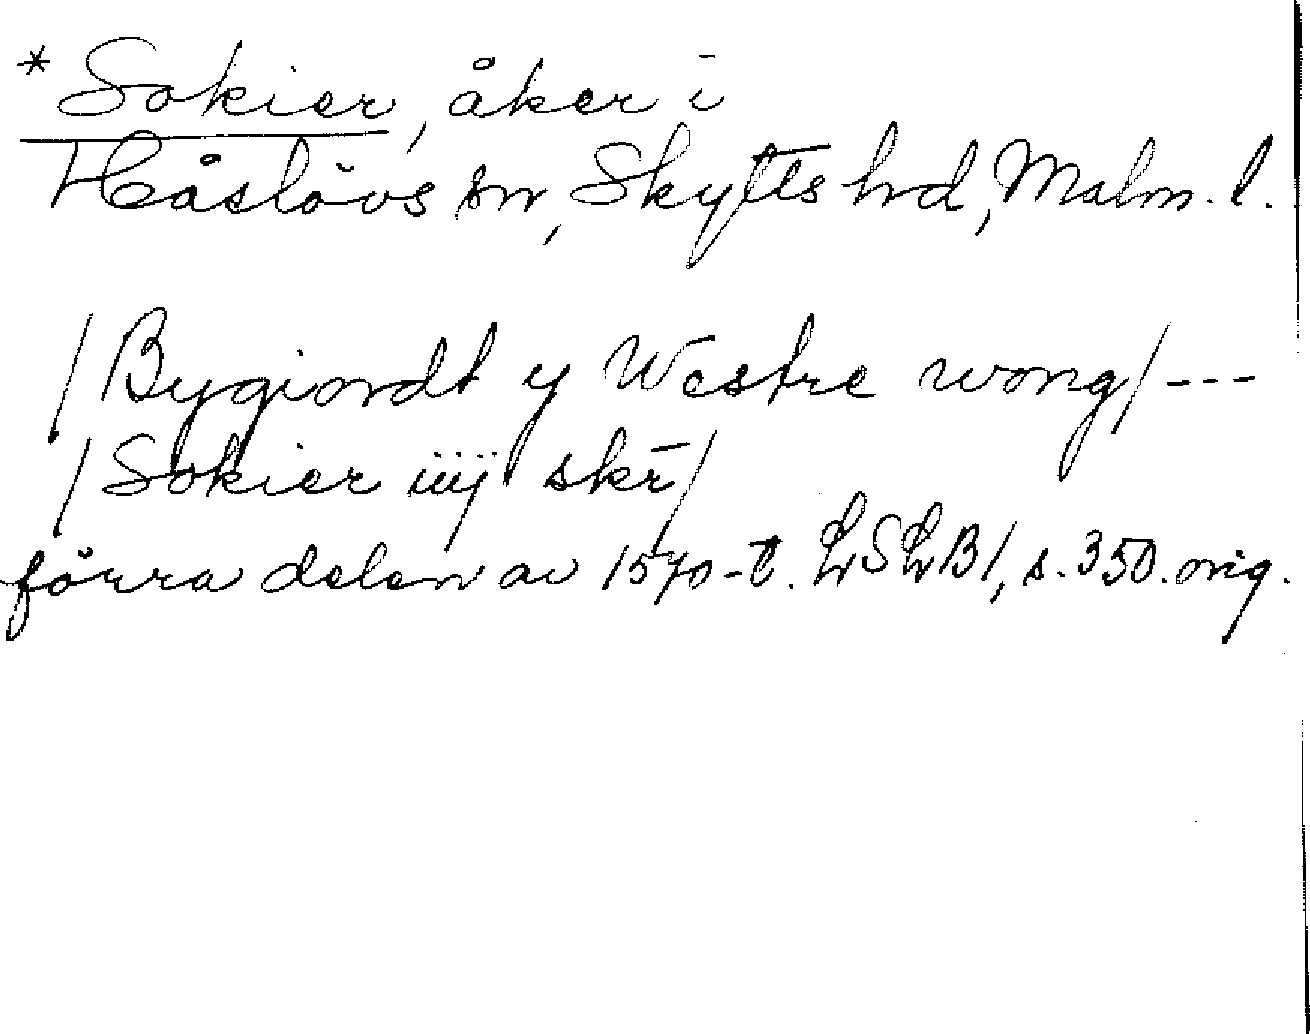 *Sokier, åker i
Håslövs sn, Skytts hd, Malm. l.
/Bygiordt y Westre wong/---
/Sokier iiij skr/
förra delen av 1570-t. LSLB1, s. 350. orig.